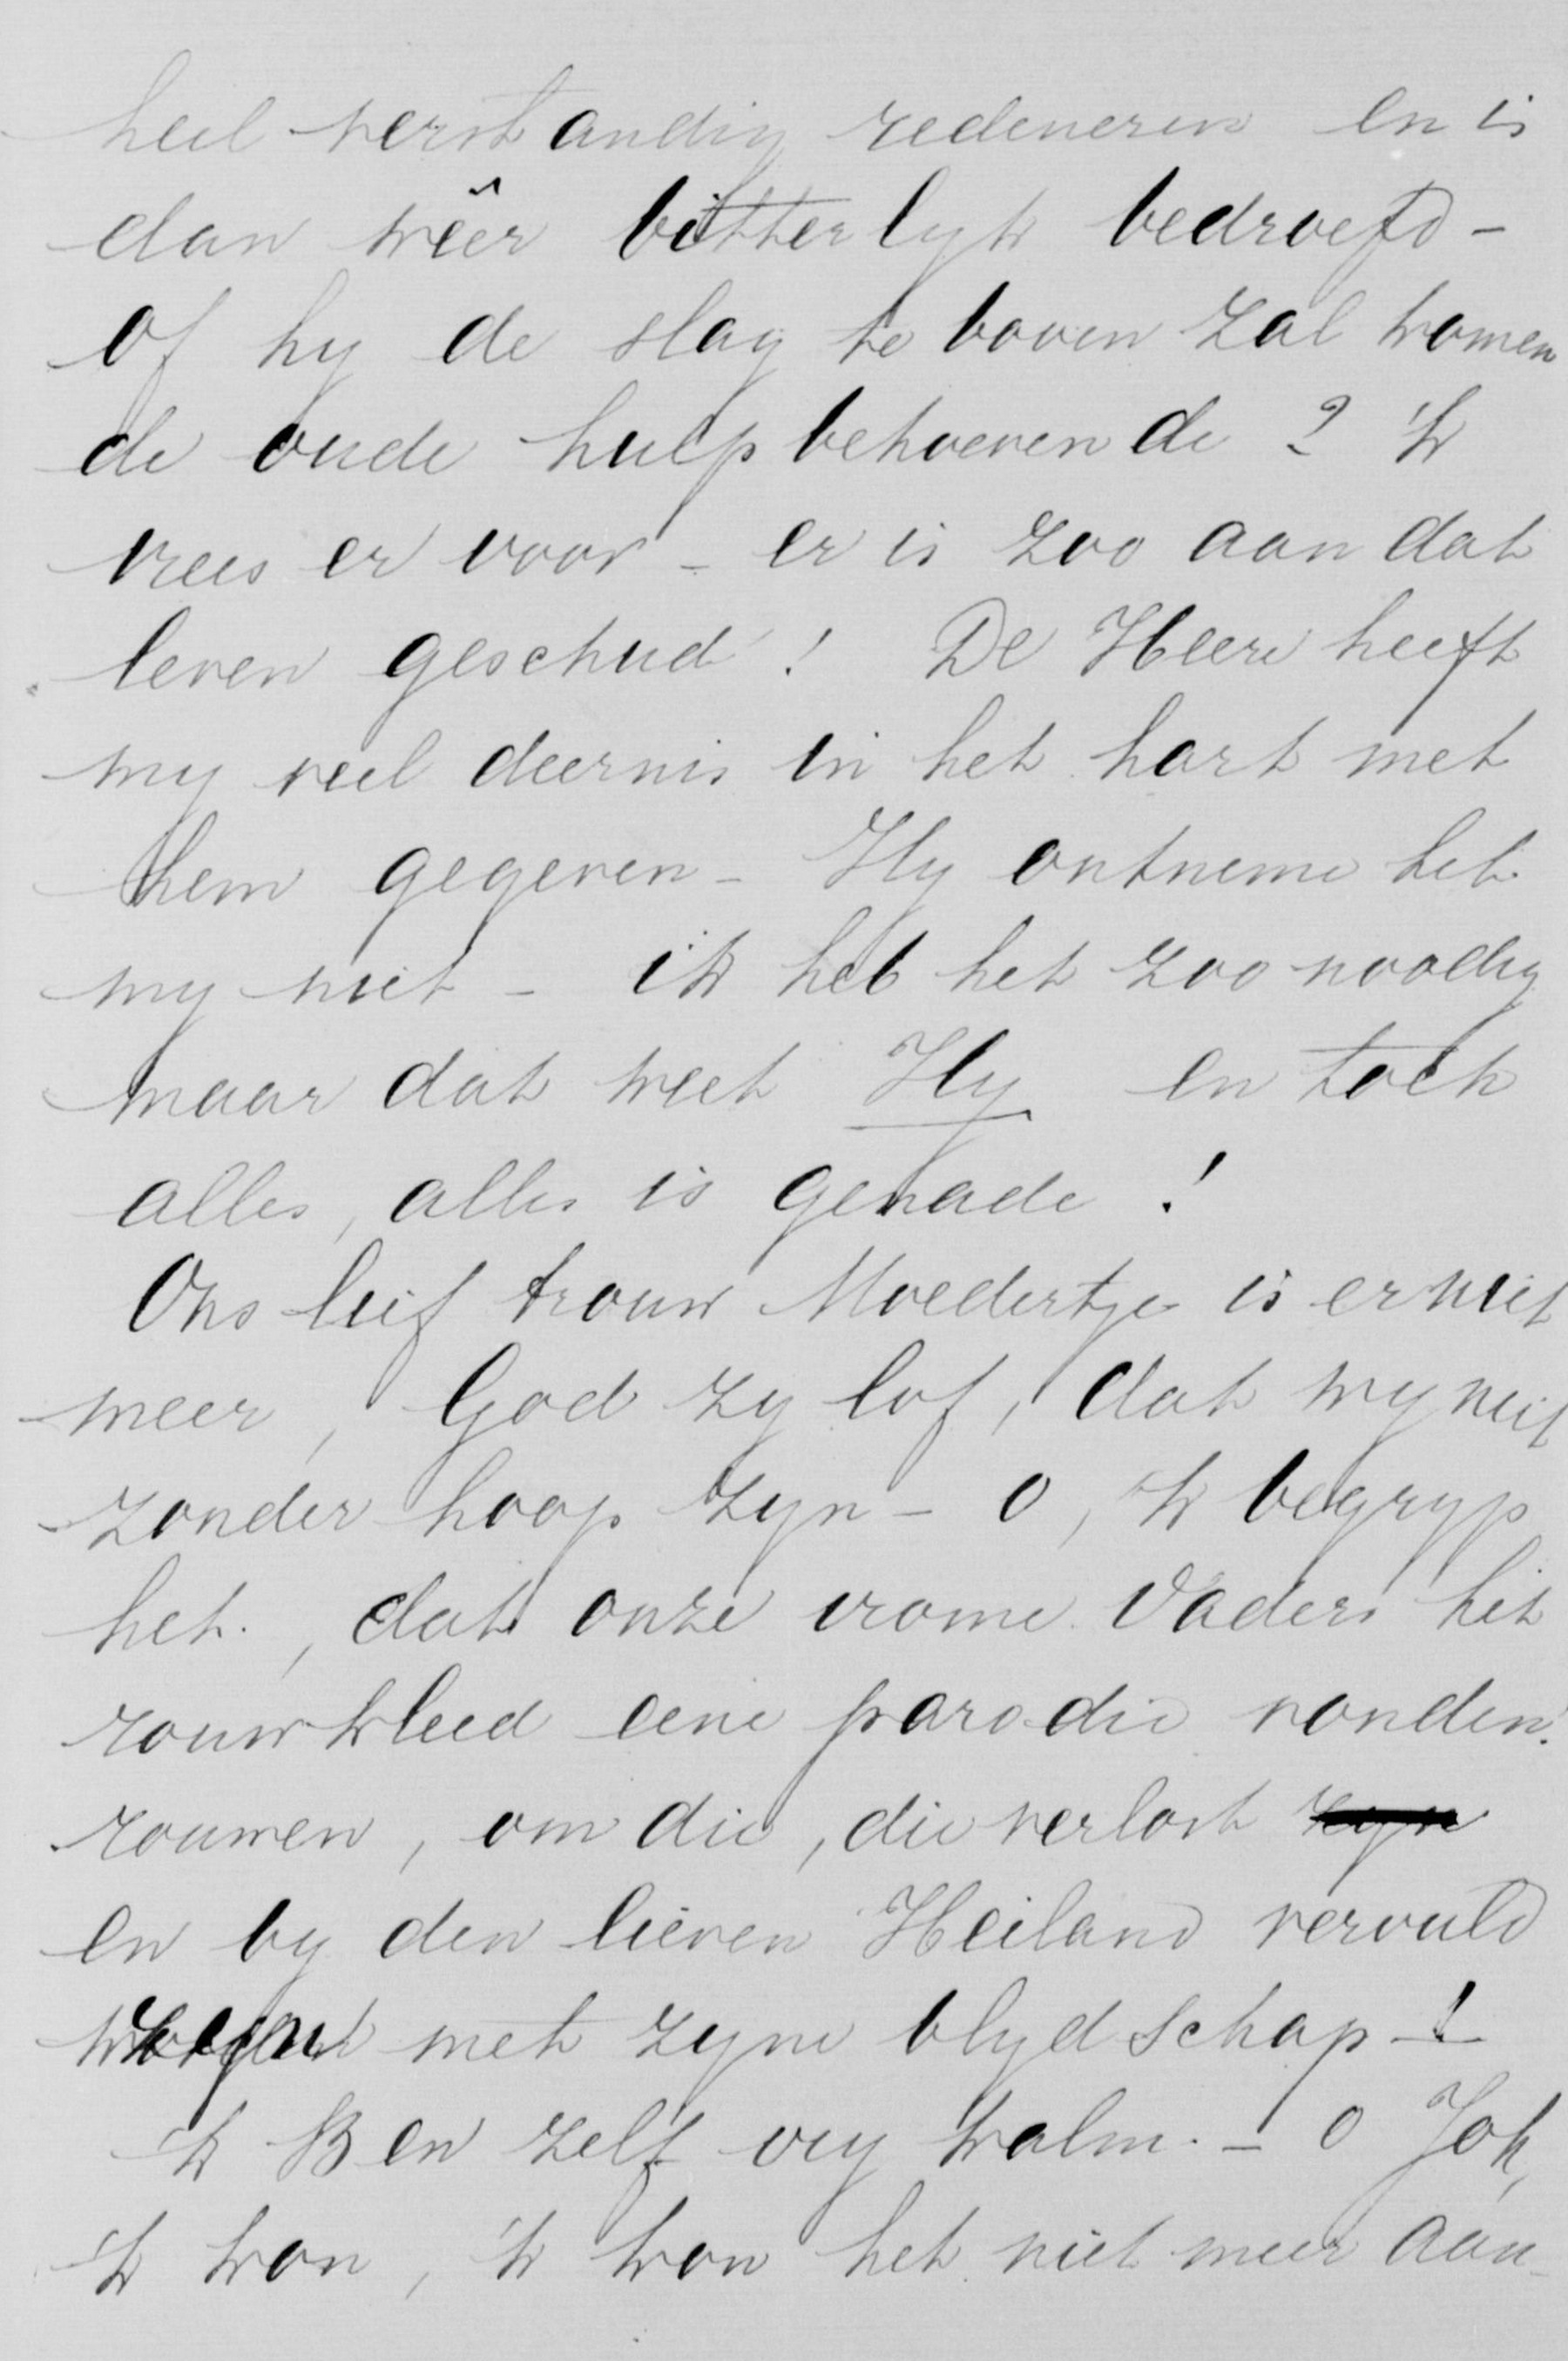 heel verstandig redeneren en is
dan wêer bitterlyk bedroefd -
of hy de slag te boven zal komen
de oude hulpbehoevende ? 'k
vrees er voor - er is zoo aan dat
leven geschud ! De Heere heeft
my veel deernis in het hart met
hem gegeven - Hy ontneme het
my niet - ik heb het zoo noodig
maar dat weet Hy en toch
alles, alles is genade !
Ons lief trouw Moedertje is er niet
meer, God zy lof, dat wy niet
zonder hoop zyn - o, 'k begryp
het, dat onze vrome Vaders het
rouwkleed eene parodie vonden.
rouwen, om die, die verlost zyn
en by den lieven Heiland vervuld
met zyne blydschap - !
'k Ben zelf vry kalm. - o Joh,
'k kon, 'k kon het niet meer aan-